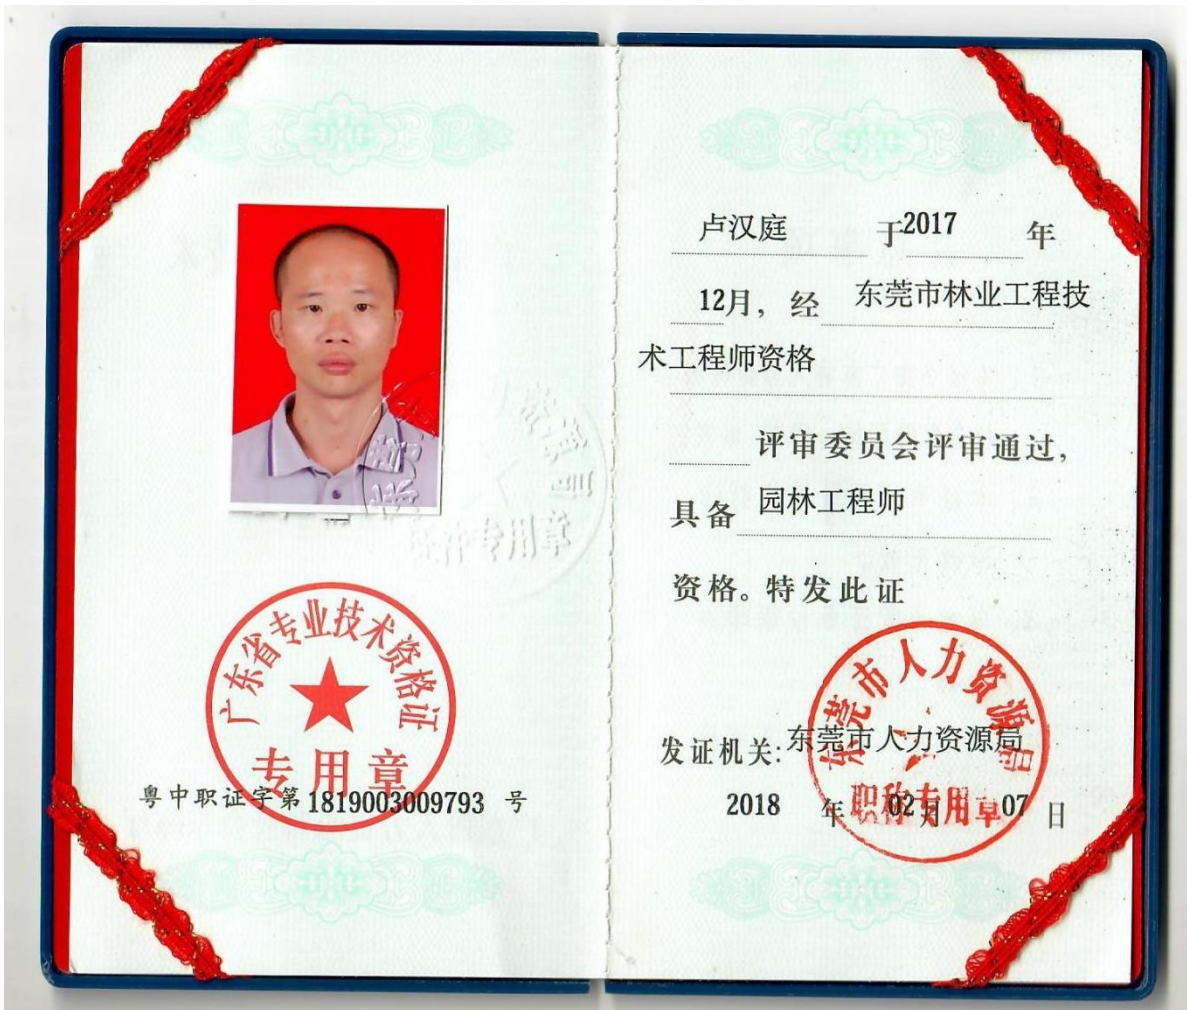 广东省专业技术资格证
专用章
粤中职证字第 1819003009793 号
卢汉庭 于2017 年
12月，经 东莞市林业工程技
术工程师资格
评审委员会评审通过，
具备 园林工程师
资格。特发此证
东莞市人力资源局
发证机关:东莞市人力资源局
职称专用章
2018 年 02 月 07 日